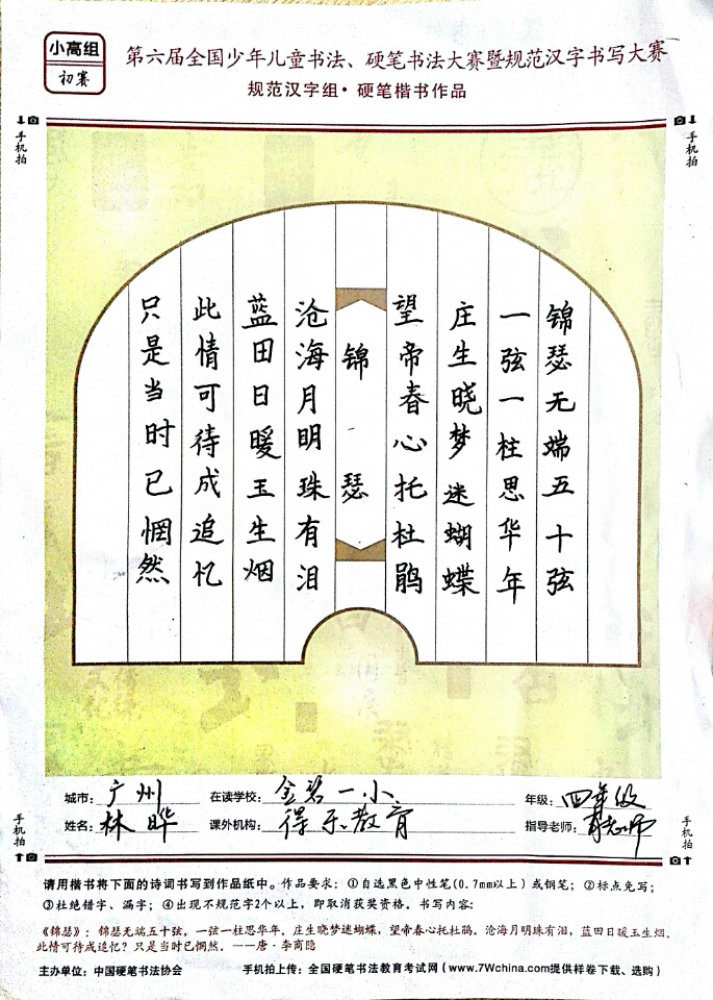 小高组
初赛
第六届全国少年儿童书法、硬笔书法大赛暨规范汉字书写大赛
规范汉字组·硬笔楷书作品
手机拍
手机拍
锦瑟无端五十弦
一弦一柱思华年
庄生晓梦迷蝴蝶
望帝春心托杜鹃
锦瑟
沧海月明珠有泪
蓝田日暖玉生烟
此情可待成追忆
只是当时已惘然
城市：广州
在读学校：金碧一小
年级：四年级
姓名：林晔
课外机构：得乐教育
指导老师：老师
手机拍
手机拍
请用楷书将下面的诗词书写到作品纸中。作品要求：①自选黑色中性笔(0.7mm以上)或钢笔；②标点免写；
③杜绝错字、漏字；④出现不规范字2个以上，即取消获奖资格，书写内容：
《锦瑟》：锦瑟无端五十弦，一弦一柱思华年，庄生晓梦迷蝴蝶，望帝春心托杜鹃。沧海月明珠有泪，蓝田日暖玉生烟。
此情可待成追忆？只是当时已惘然。——唐·李商隐
主办单位：中国硬笔书法协会
手机拍上传：全国硬笔书法教育考试网（www.7Wchina.com提供样卷下载、选购）